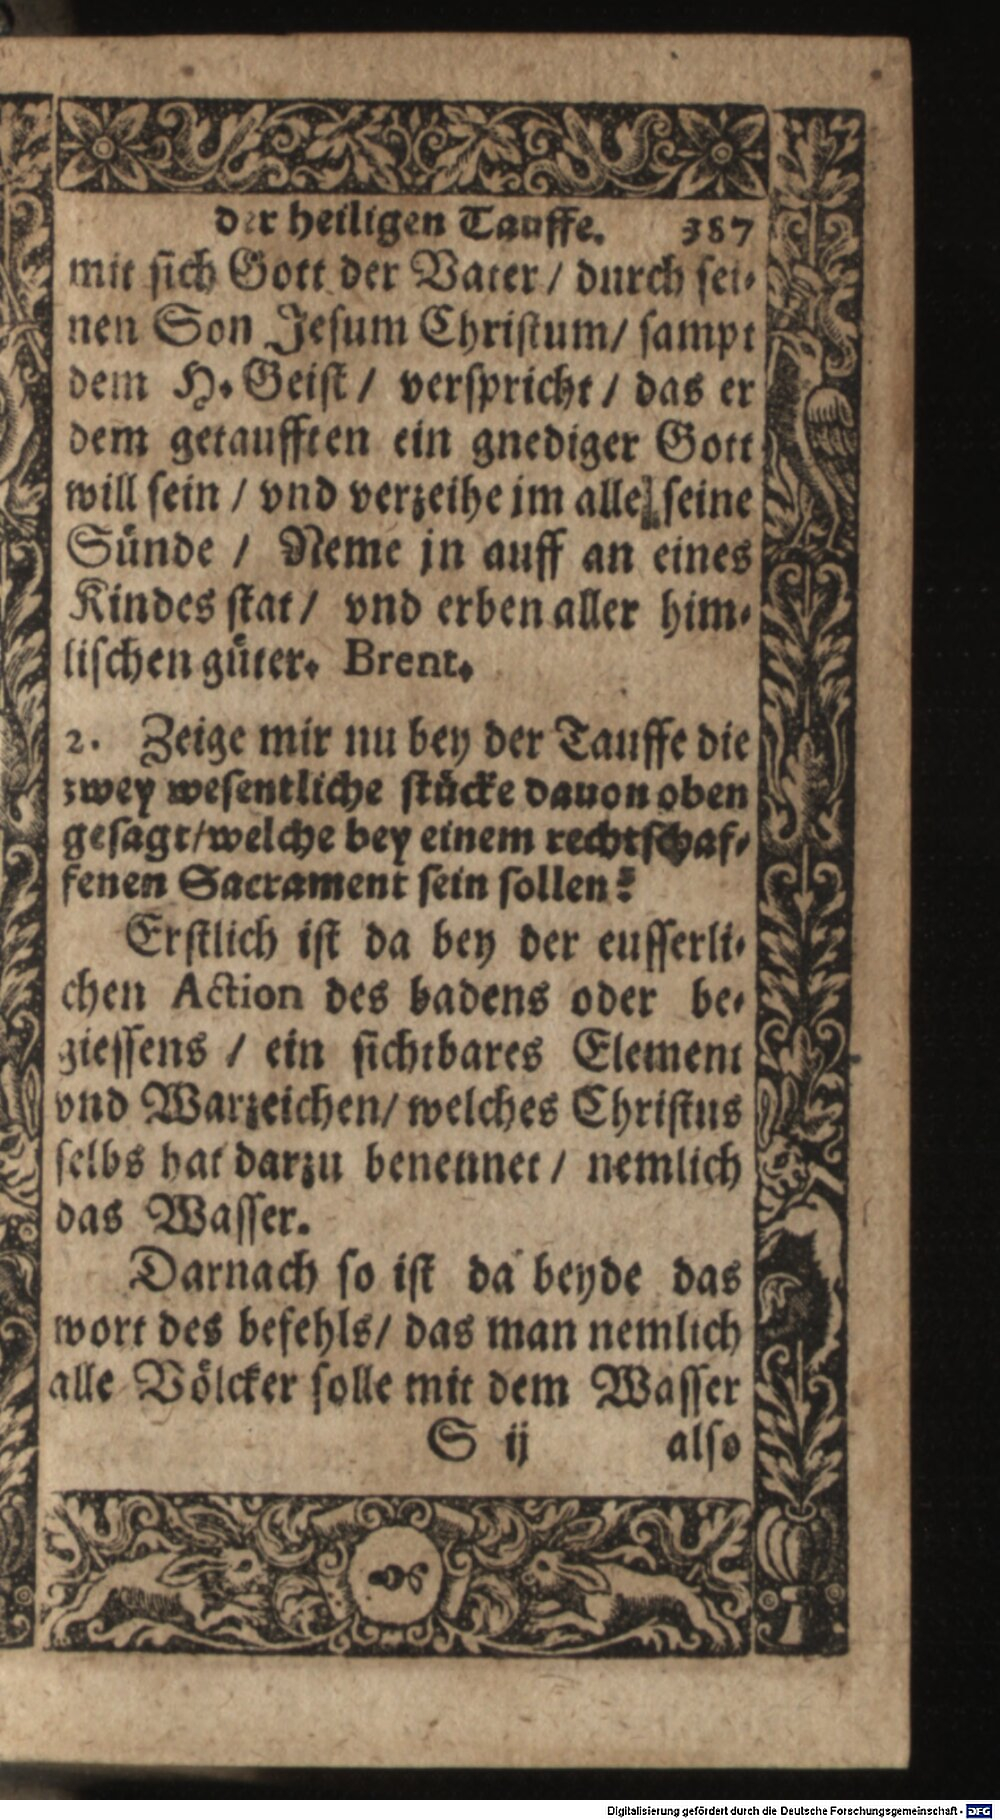 der heiligen Tauffe. 387
mit sich Gott der Vater / durch sei-
nen Son Jesum Christum / sampt
dem H. Geist / verspricht / das er
dem getaufften ein gnediger Gott
will sein / vnd verzeihe jm alle seine
Sünde / Neme jn auff an eines
Kindes stat / vnd erben aller him-
lischen güter. Brent.
2. Zeige mir nu bey der Tauffe die
zwey wesentliche stücke dauon oben
gesagt / welche bey einem rechtschaf-
fenen Sacrament sein sollen?
Erstlich ist da bey der eusserli-
chen Action des badens oder be-
giessens / ein sichtbares Element
vnd Warzeichen / welches Christus
selbs hat darzu benennet / nemlich
das Wasser.
Darnach so ist da beyde das
wort des befehls / das man nemlich
alle Völcker solle mit dem Wasser
S ij also
Digitalisierung gefördert durch die Deutsche Forschungsgemeinschaft - DFG